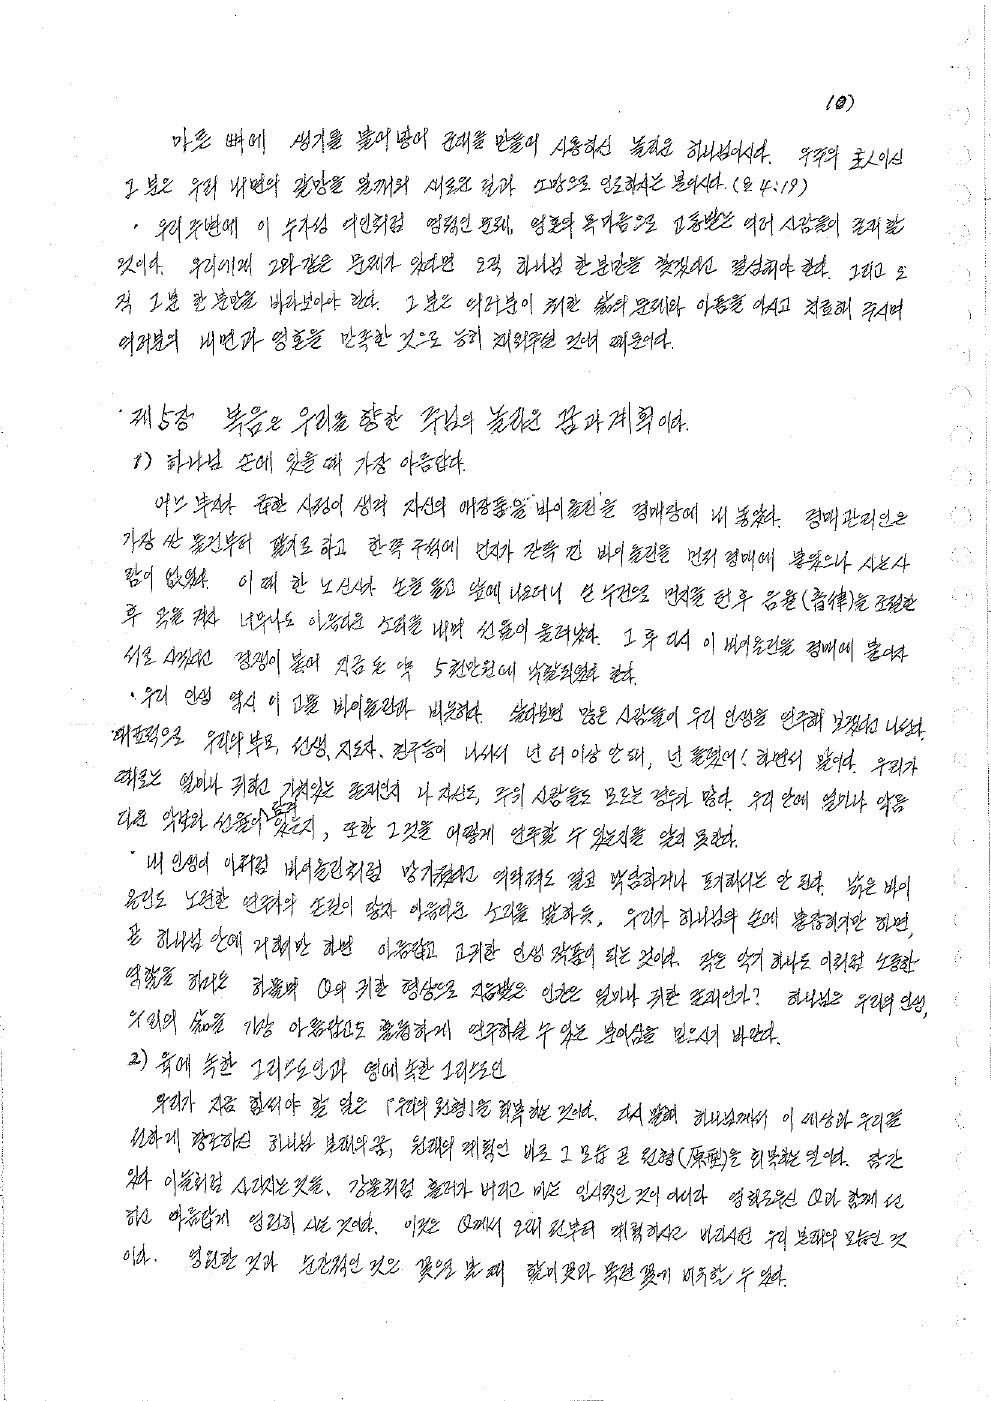 10)
마른 뼈에 생기를 불어넣어 군대를 만들어 사용하신 놀라운 하나님이시다. 우주의 主人이신
그 분은 우리 내면의 갈망을 일깨워 새로운 길과 소망으로 인도하시는 분이시다. (요 4:19)
· 우리주변에 이 수가성 여인처럼 영적인 문제, 영혼의 목마름으로 고통받는 여러 사람들이 존재할
것이다. 우리에게 그와 같은 문제가 있다면 오직 하나님 한분만을 찾겠다고 결심해야 한다. 그리고 오
직 그분 한 분만을 바라보아야 한다. 그 분은 여러분이 처한 삶의 문제와 아픔을 아시고 치료해 주시며
여러분의 내면과 영혼을 만족한 것으로 능히 채워주실 것이기 때문이다.
· 제5장 복음은 우리를 향한 주님의 놀라운 꿈과 계획이다.
1) 하나님 손에 있을 때 가장 아름답다.
어느 부자가 급한 사정이 생겨 자신의 애장품을 '바이올린'을 경매장에 내 놓았다. 경매관리인은
가장 싼 물건부터 팔기로 하고 한쪽 구석에 먼지가 잔뜩 낀 바이올린을 먼저 경매에 붙였으나 사는 사
람이 없었다. 이 때 한 노신사가 손을 들고 앞에 나오더니 손수건으로 먼지를 턴 후 음율(音律)을 조절한
후 곡을 켜자 너무나도 아름다운 소리를 내며 선율이 울려났다. 그 후 다시 이 바이올린을 경매에 붙이자
서로 사겠다고 경쟁이 붙어 지금 돈 약 5천만원에 낙찰되었다 한다.
· 우리 인생 역시 이 고물 바이올린과 비슷하다. 살다보면 많은 사람들이 우리 인생을 연주해 보겠다고 나선다.
대표적으로 우리의 부모, 선생, 지도자, 친구들이 나서서 넌 더 이상 안돼, 넌 틀렸어! 하면서 말이다. 우리가
때로는 얼마나 귀하고 가치있는 존재인지 나 자신도, 주위 사람들도 모르는 경우가 많다. 우리 안에 얼마나 아름
다운 악보와 선율이 있는지, 또한 그것을 어떻게 연주할 수 있는지를 알지 못한다.
· 내 인생이 이처럼 바이올린처럼 망가졌다고 여러분도 결코 낙담하거나 포기하셔는 안 된다. 낡은 바이
올린도 노련한 연주자의 손길이 닿자 아름다운 소리를 발하듯, 우리가 하나님의 손에 붙잡히기만 하면,
곧 하나님 안에 거하기만 하면 아름답고 고귀한 인생 작품이 되는 것이다. 작은 악기 하나도 이처럼 소중한
역할을 하거든 하물며 하나님의 귀한 형상으로 지음받은 인간은 얼마나 귀한 존재인가? 하나님은 우리의 인생,
우리의 삶을 가장 아름답고도 훌륭하게 연주하실 수 있는 분이심을 믿으시기 바란다.
2) 육에 속한 그리스도인과 영에 속한 그리스도인
우리가 지금 힘써야 할 일은 「우리의 원형」을 회복하는 것이다. 다시 말해 하나님께서 이 세상과 우리를
선하게 창조하신 하나님 본래의 꿈, 원래의 계획인 바로 그 모습 곧 원형(原型)을 회복하는 일이다. 잠깐
있다 이슬처럼 사라지는 것들, 강물처럼 흘러가 버리고 마는 일시적인 것이 아니라 영화로우신 O과 함께 선
하고 아름답게 영원히 사는 것이다. 이것은 O께서 오래 전부터 계획하시고 바라시던 우리 본래의 모습인 것
이다. 영원한 것과 순간적인 것은 꽃으로 말 때 할미꽃과 목련 꽃에 비유할 수 있다.